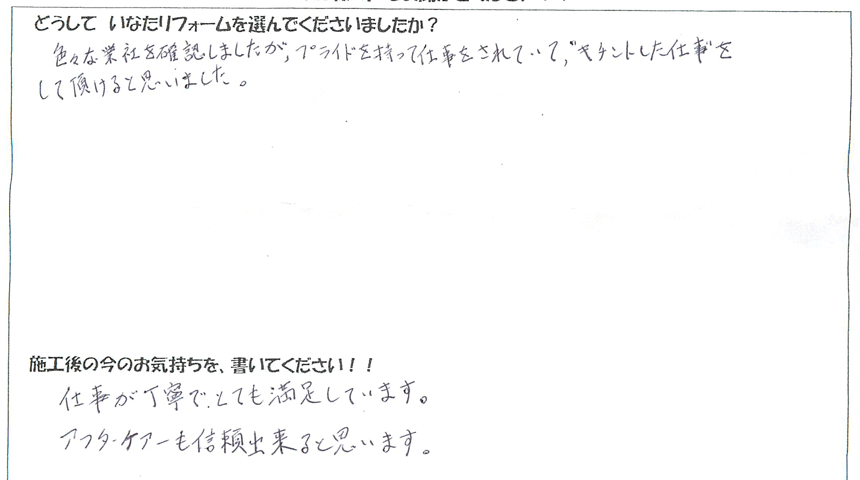 どうして いなたリフォームを選んでくださいましたか？
色々な業社を確認しましたが、プライドを持って仕事をされていて、"キチントした仕事"を
して頂けると思いました。
施工後の今のお気持ちを、書いてください！！
仕事が丁寧で、とても満足しています。
アフターケアーも信頼出来ると思います。